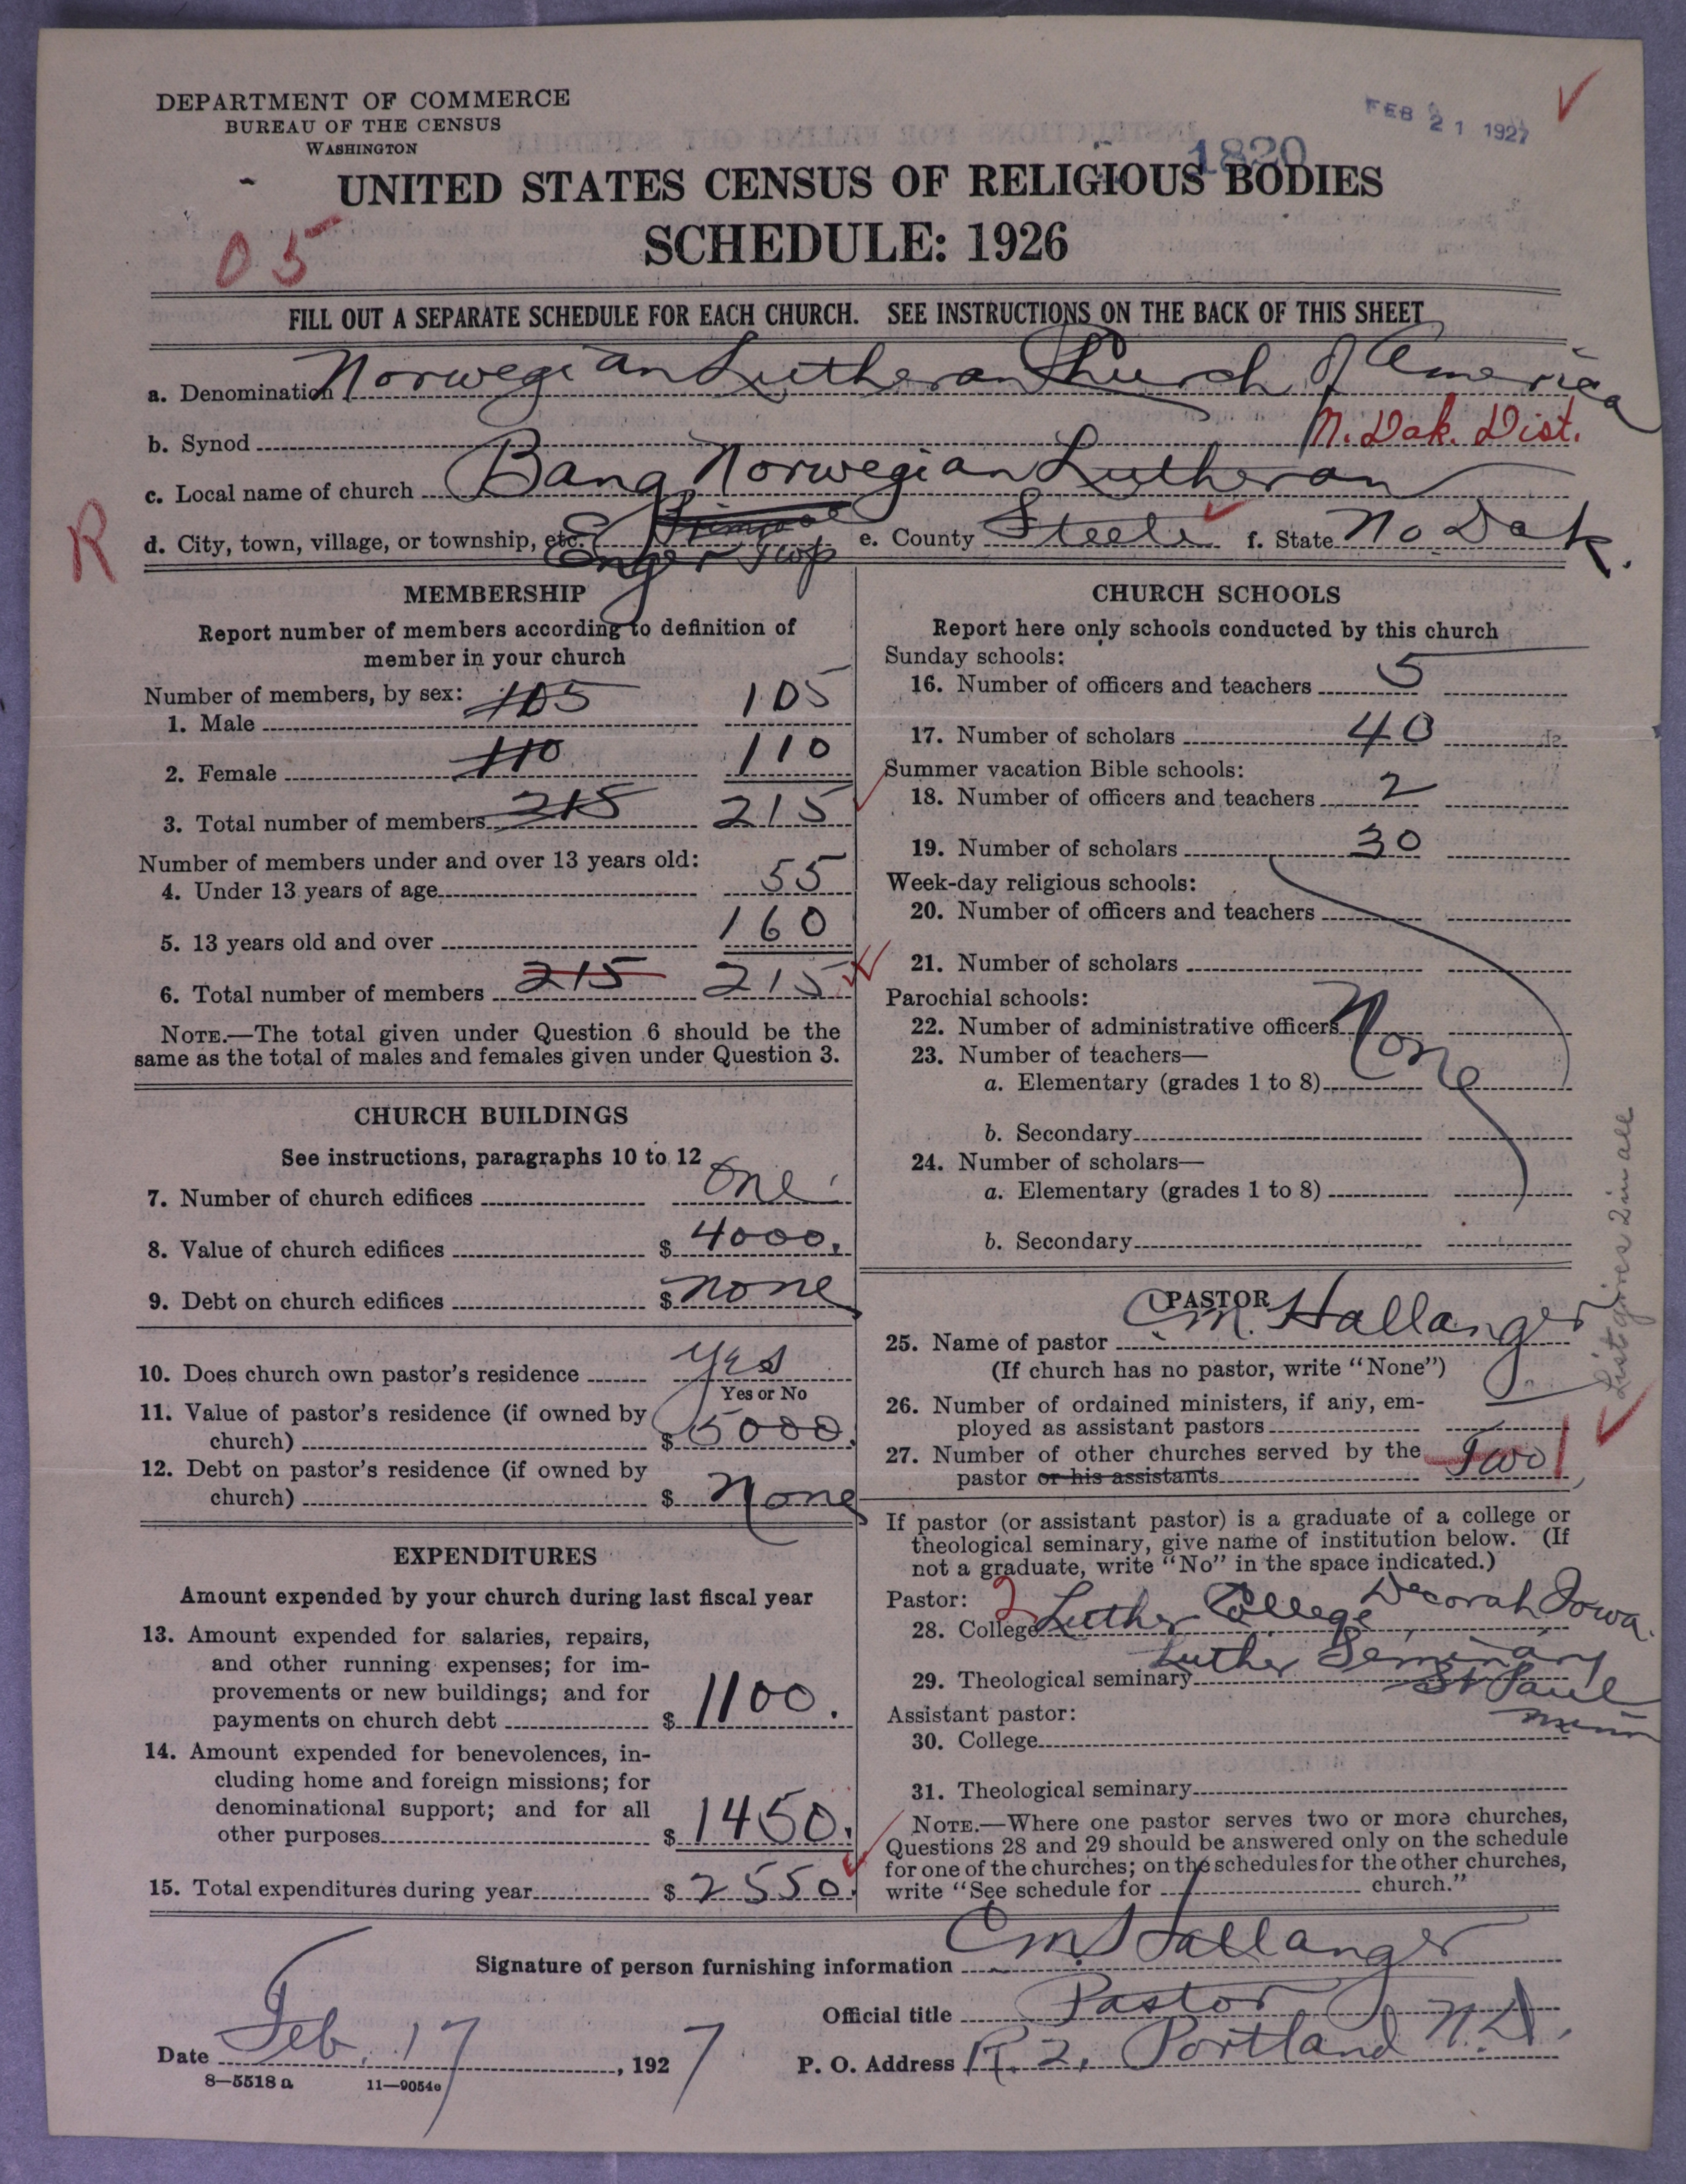 DEPARTMENT OF COMMERCE
BUREAU OF THE CENSUS
WASHINGTON
FEB 21 1927
1820
UNITED STATES CENSUS OF RELIGIOUS BODIES
SCHEDULE: 1926
05
FILL OUT A SEPARATE SCHEDULE FOR EACH CHURCH. SEE INSTRUCTIONS ON THE BACK OF THIS SHEET
a. Denomination Norwegian Lutheran Church of America
b. Synod N. Dak. Dist.
c. Local name of church Bang Norwegian Lutheran
R
d. City, town, village, or township, etc. Enger Twp e. County Steele f. State No Dak.
MEMBERSHIP
Report number of members according to definition of
member in your church
Number of members, by sex:
1. Male 105 105
2. Female 110 110
3. Total number of members 215 215
Number of members under and over 13 years old:
4. Under 13 years of age 55
5. 13 years old and over 160
6. Total number of members 215 215
NOTE.—The total given under Question 6 should be the
same as the total of males and females given under Question 3.
CHURCH BUILDINGS
See instructions, paragraphs 10 to 12
7. Number of church edifices One
8. Value of church edifices $ 4000.
9. Debt on church edifices $ none
10. Does church own pastor's residence yes
Yes or No
11. Value of pastor's residence (if owned by
church) $ 5000.
12. Debt on pastor's residence (if owned by
church) $ None
EXPENDITURES
Amount expended by your church during last fiscal year
13. Amount expended for salaries, repairs,
and other running expenses; for im-
provements or new buildings; and for
payments on church debt $ 1100.
14. Amount expended for benevolences, in-
cluding home and foreign missions; for
denominational support; and for all
other purposes $ 1450.
15. Total expenditures during year $ 2550.
CHURCH SCHOOLS
Report here only schools conducted by this church
Sunday schools:
16. Number of officers and teachers 5
17. Number of scholars 40
Summer vacation Bible schools:
18. Number of officers and teachers 2
19. Number of scholars 30
Week-day religious schools:
20. Number of officers and teachers
21. Number of scholars
Parochial schools:
22. Number of administrative officers
None
23. Number of teachers—
a. Elementary (grades 1 to 8)
b. Secondary
24. Number of scholars—
a. Elementary (grades 1 to 8)
b. Secondary
List gives 2 in all
PASTOR
25. Name of pastor C M. Hallanger
(If church has no pastor, write "None")
26. Number of ordained ministers, if any, em-
ployed as assistant pastors
27. Number of other churches served by the
pastor or his assistants Two 1
If pastor (or assistant pastor) is a graduate of a college or
theological seminary, give name of institution below. (If
not a graduate, write "No" in the space indicated.)
Pastor: 2
28. College Luther College Decorah Iowa.
29. Theological seminary Luther Seminary
St Paul
Minn
Assistant pastor:
30. College
31. Theological seminary
NOTE.—Where one pastor serves two or more churches,
Questions 28 and 29 should be answered only on the schedule
for one of the churches; on the schedules for the other churches,
write "See schedule for church."
Signature of person furnishing information C M Hallanger
Official title Pastor
Date Feb. 17, 1927 P. O. Address R. 2, Portland N.D.
8—5518 a 11—9054a